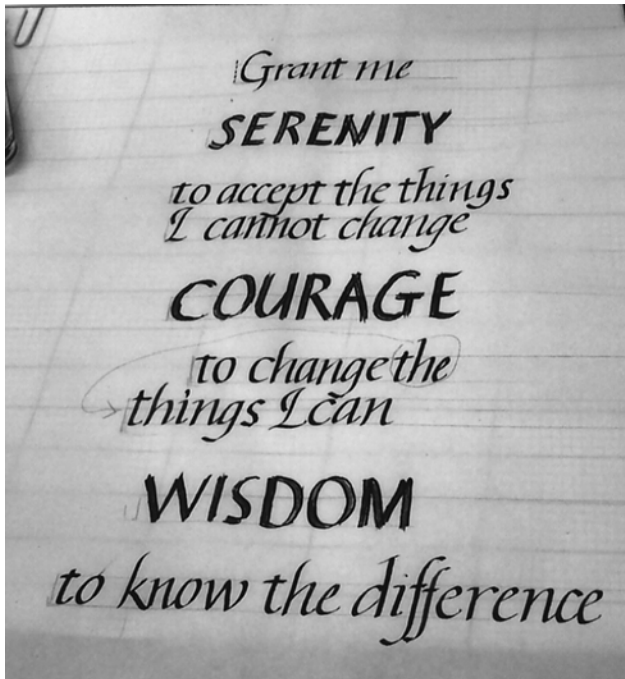 Grant me
SERENITY
to accept the things
I cannot change
COURAGE
to change the
things I can
WISDOM
to know the difference